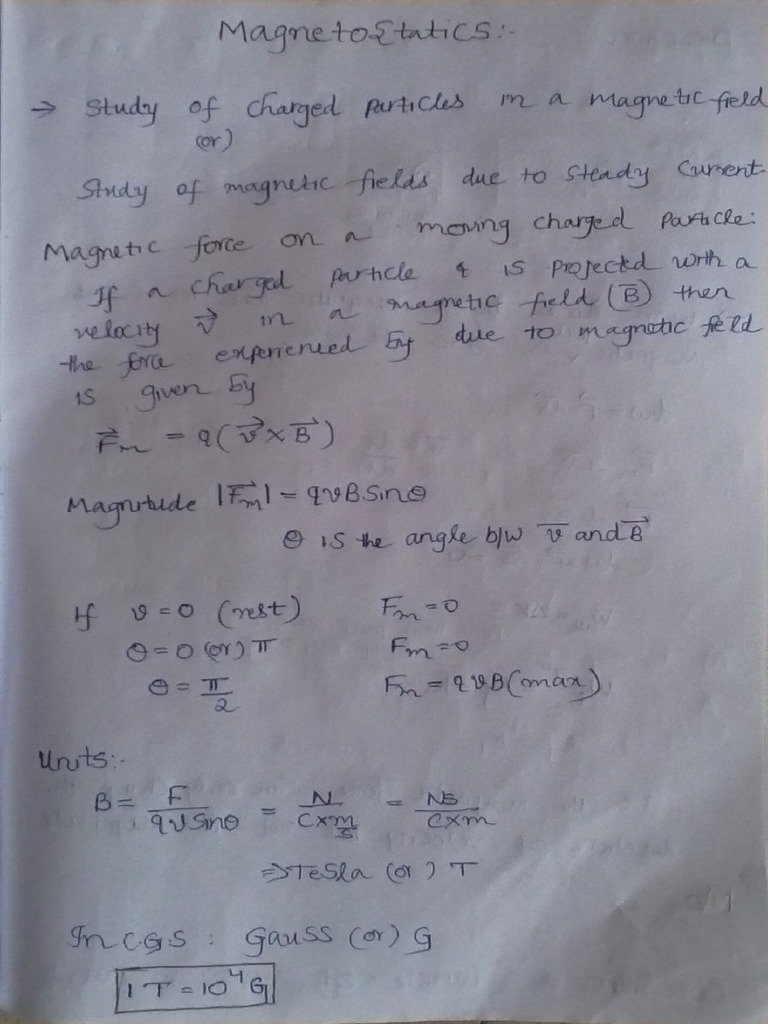 MagnetoStatics:-
→ Study of charged particles in a magnetic field
(or)
Study of magnetic fields due to steady current.
Magnetic force on a moving charged particle:
If a charged particle q is projected with a
velocity v⃗ in a magnetic field (B⃗) then
the force experienced by due to magnetic field
is given by
F⃗m = q(v⃗ × B⃗)
Magnitude |F⃗m| = qvB Sinθ
θ is the angle b/w v⃗ and B⃗
If v = 0 (rest) Fm = 0
θ = 0 (or) π Fm = 0
θ = π/2 Fm = qvB (max)
Units:-
B = F/(qv Sinθ) = N/(C × m/s) = NS/(C × m)
⇒ Tesla (or) T
In C.G.S : Gauss (or) G
1 T = 10⁴ G